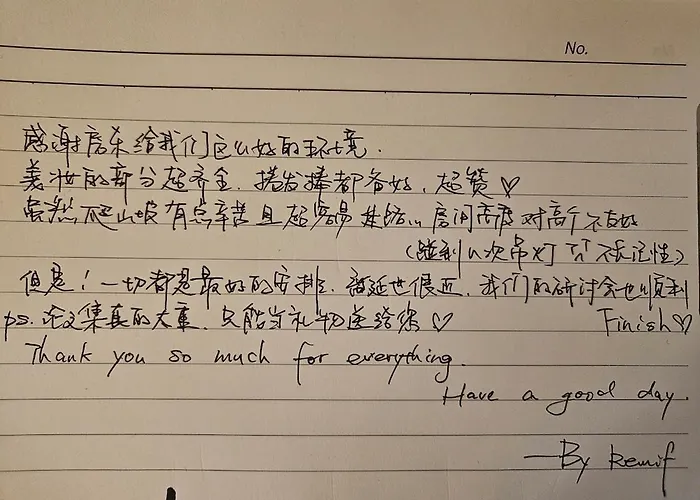 No.
感谢房东给我们这么好的环境.
美妆的部分超齐全. 卷发棒都备好, 超赞♡
虽然爬山坡有点辛苦且超容易 房间高度对高个不友好
(碰到N次吊灯 不长记性)
但是! 一切都是最好的安排. 离延世很近, 我们的研讨会也顺利
Finish♡
ps. 论文集真的太重, 只能当礼物送给您♡
Thank you so much for everything.
Have a good day.
—By